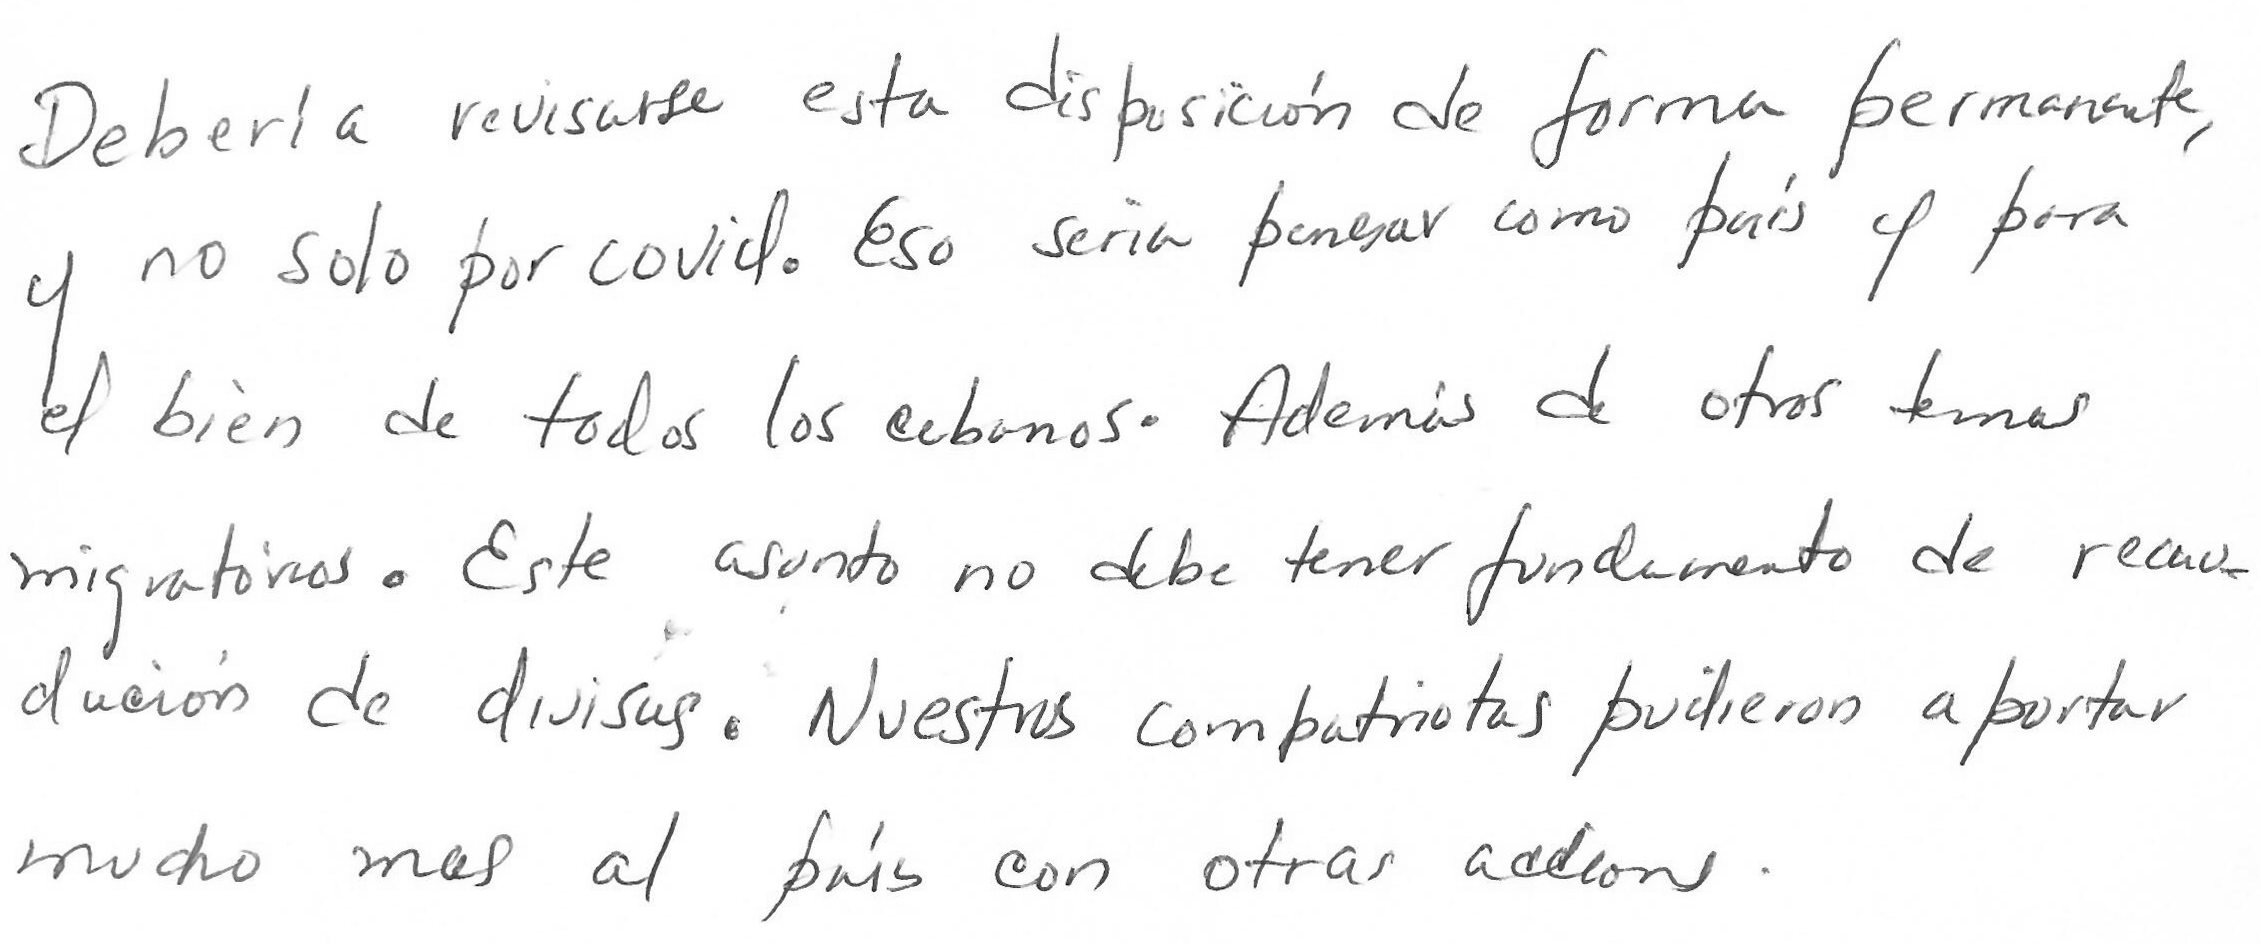 Debería revisarse esta disposición de forma permanente,
y no solo por covid. Eso seria pensar como país y para
el bien de todos los cubanos. Además de otros temas
migratorios. Este asunto no debe tener fundamento de recau-
dación de divisas. Nuestros compatriotas pudieron aportar
mucho mas al país con otras acciones.